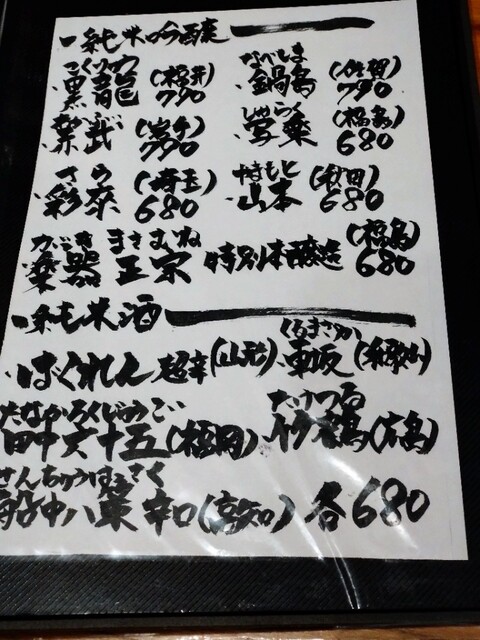 ・純米吟醸
こくりゅう
・黒龍 (福井) 790
なべしま
・鍋島 (佐賀) 790
(岩手) 790
しゃらく
・写楽 (福島) 680
さら
・彩來 (埼玉) 680
やまもと
・山本 (秋田) 680
がっき まさむね
楽器正宗 特別本醸造 (福島) 680
・純米酒
・はくれん 超辛 (山形)
くるまざか
・車坂 (和歌山)
たなかろくじゅうご
田中六十五 (福岡)
たけつる
・竹鶴 (広島)
せんちゅうはっさく
船中八策 辛口 (高知) 各680